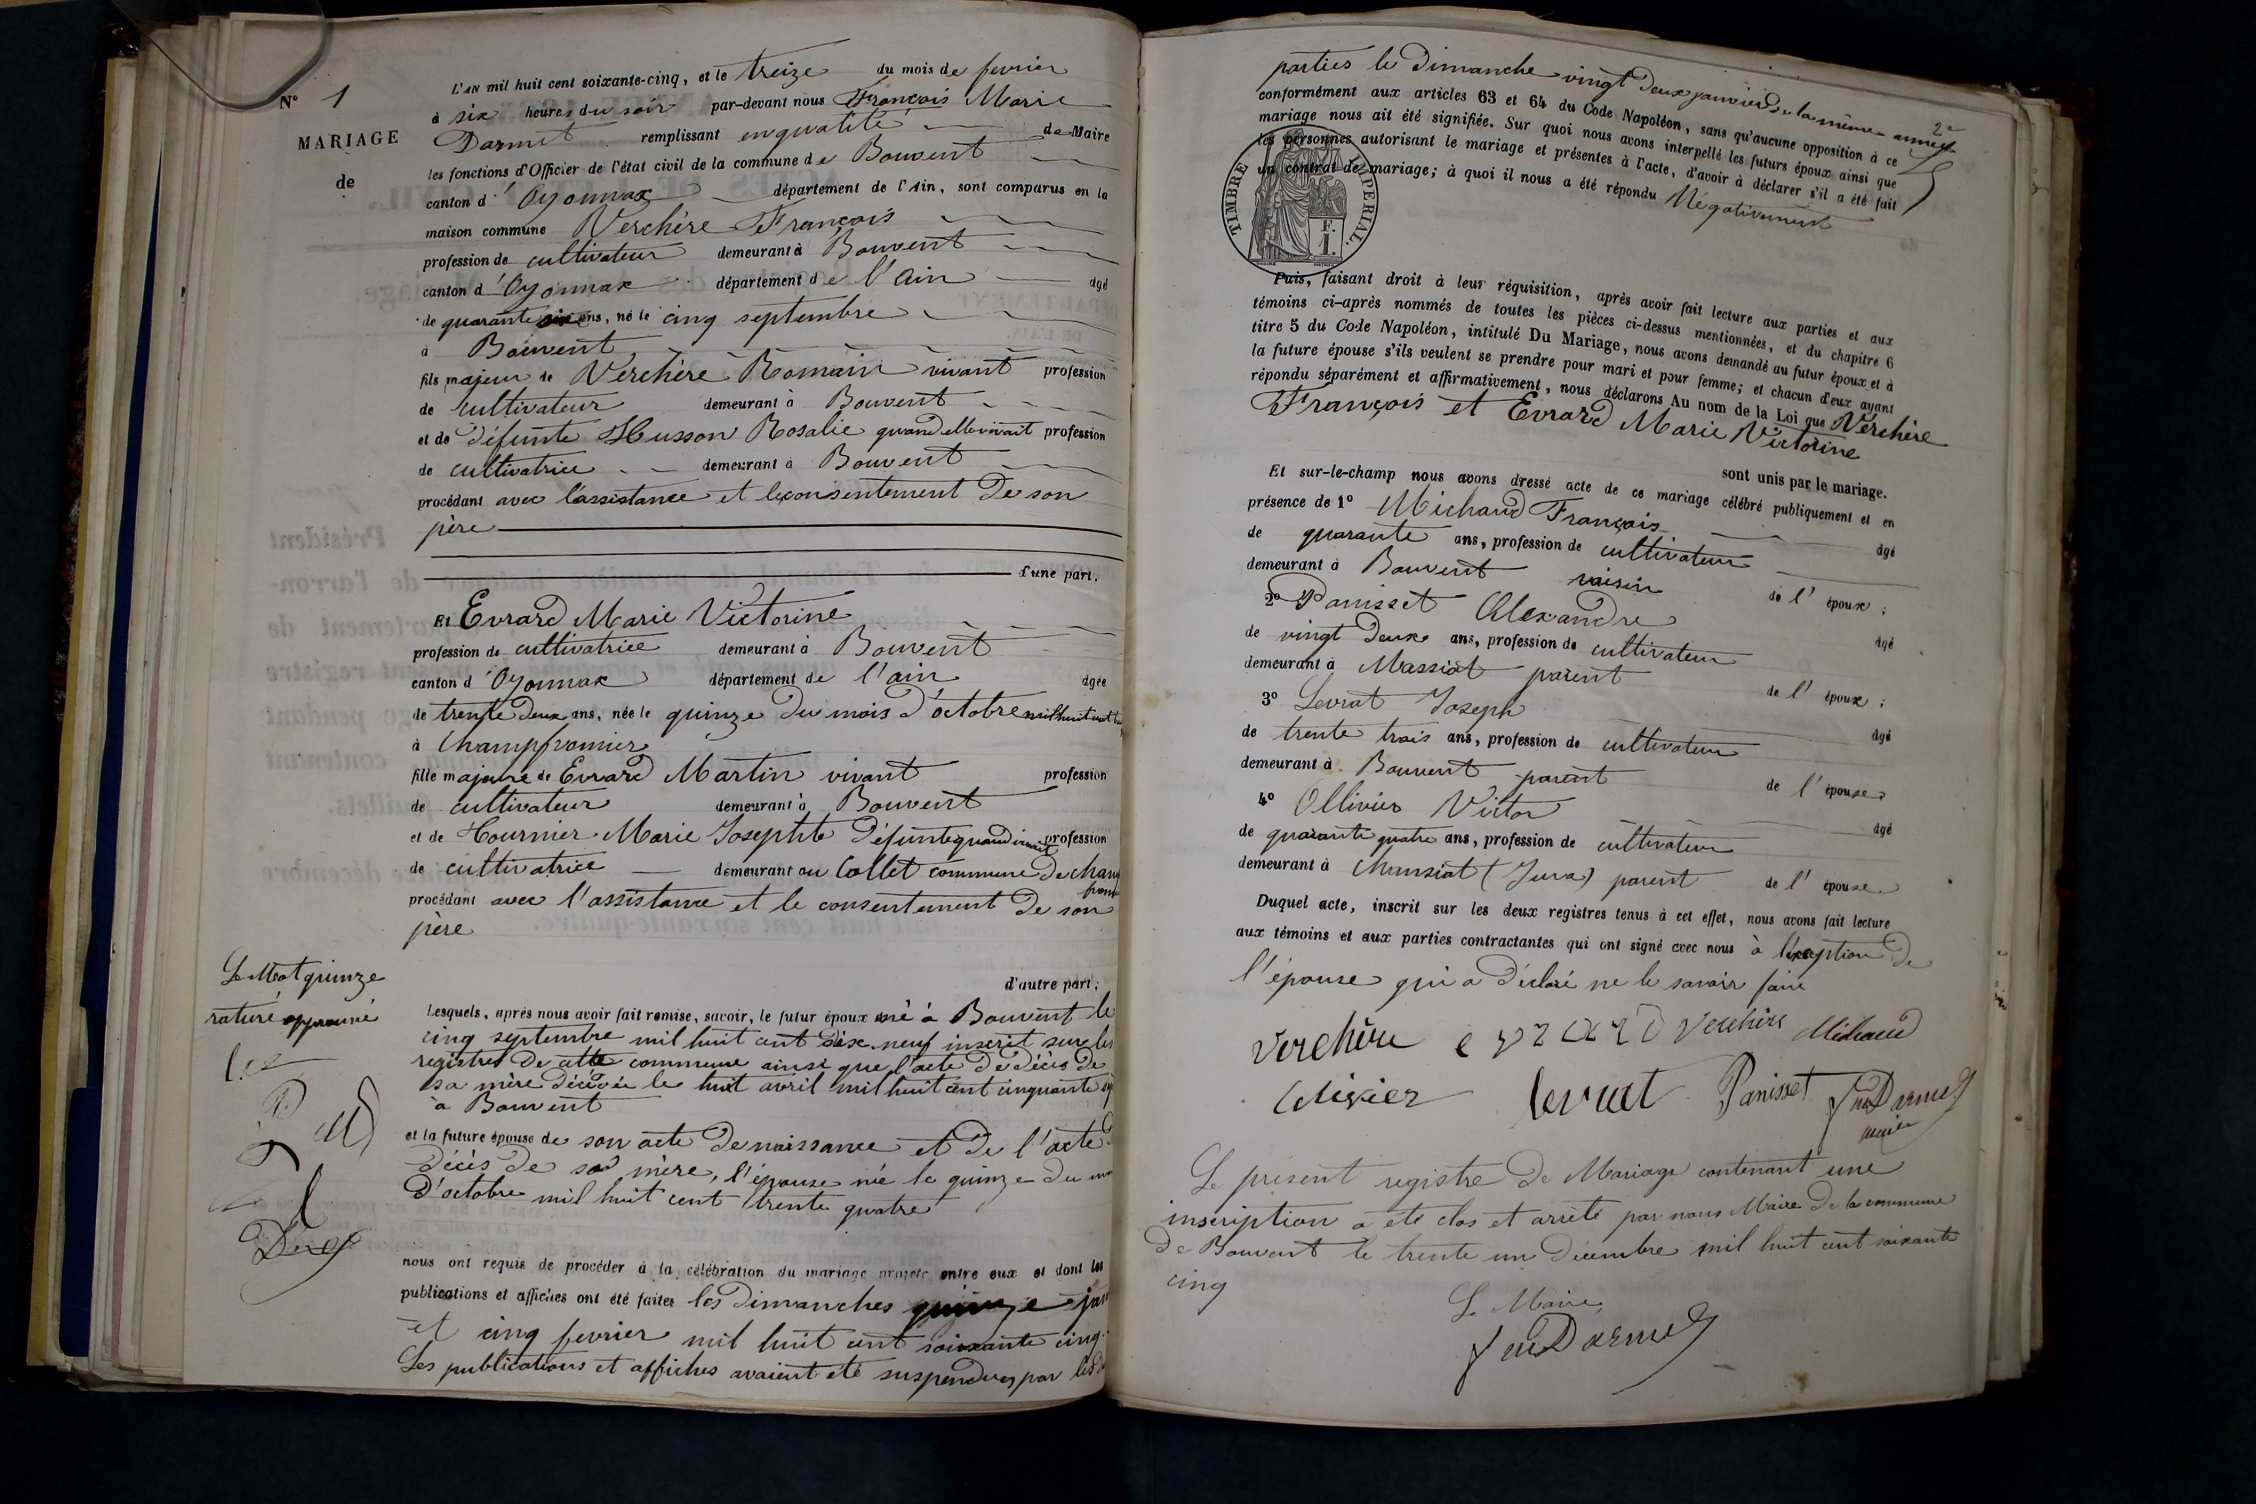 N° 1
MARIAGE
de
L'AN mil huit cent soixante-cinq, et le treize du mois de fevrier
à six heures du soir par-devant nous François Marie
Darmet remplissant en qualité de Maire
les fonctions d'Officier de l'état civil de la commune de Bouvent
canton d'Oyonnax département de l'Ain, sont comparus en la
maison commune Verchère François
profession de cultivateur demeurant à Bouvent
canton d'Oyonnax département de l'ain âgé
de quarante ans, né le cinq septembre
à Bouvent
fils majeur de Verchère Romain vivant profession
de cultivateur demeurant à Bouvent
et de défunte Husson Rosalie quand elle vivait profession
de cultivatrice demeurant à Bouvent
procédant avec l'assistance et le consentement de son
père
d'une part.
Et Evrard Marie Victorine
profession de cultivatrice demeurant à Bouvent
canton d'Oyonnax département de l'ain âgée
de trente deux ans, née le quinze du mois d'octobre mil huit cent
à Champfromier
fille majeure de Evrard Martin vivant profession
de cultivateur demeurant à Bouvent
et de Tournier Marie Josephte défunte quand vivait profession
de cultivatrice demeurant au Collet commune de Champ
from
procédant avec l'assistance et le consentement de son
père
d'autre part;
Le Mot quinze
raturé approuvé
Lesquels, après nous avoir fait remise, savoir, le futur époux né à Bouvent le
cinq septembre mil huit cent dix-neuf inscrit sur les
registres de cette commune ainsi que l'acte de décès de
sa mère décédée le huit avril mil huit cent cinquante
à Bouvent
et la future épouse de son acte de naissance et de l'acte
décès de sa mère, l'épouse née le quinze du
d'octobre mil huit cent trente quatre
nous ont requis de procéder à la célébration du mariage projeté entre eux et dont les
publications et affiches ont été faites les dimanches quinze jan
et cinq fevrier mil huit cent soixante cinq.
Les publications et affiches avaient été suspendues par les
2e
parties le Dimanche vingt deux janvier de la même année
conformément aux articles 63 et 64 du Code Napoléon, sans qu'aucune opposition à ce
mariage nous ait été signifiée. Sur quoi nous avons interpellé les futurs époux ainsi que
les personnes autorisant le mariage et présentes à l'acte, d'avoir à déclarer s'il a été fait
un contrat de mariage; à quoi il nous a été répondu Négativement
TIMBRE IMPERIAL
1 F.
Puis, faisant droit à leur réquisition, après avoir fait lecture aux parties et aux
témoins ci-après nommés de toutes les pièces ci-dessus mentionnées, et du chapitre 6
titre 5 du Code Napoléon, intitulé Du Mariage, nous avons demandé au futur époux et à
la future épouse s'ils veulent se prendre pour mari et pour femme; et chacun d'eux ayant
répondu séparément et affirmativement, nous déclarons Au nom de la Loi que Verchère
François et Evrard Marie Victorine
sont unis par le mariage.
Et sur-le-champ nous avons dressé acte de ce mariage célébré publiquement et en
présence de 1° Michaud François âgé
de quarante ans, profession de cultivateur
demeurant à Bouvent voisin de l'époux;
2° Panisset Alexandre âgé
de vingt deux ans, profession de cultivateur
demeurant à Massiat parent de l'époux;
3° Levrat Joseph âgé
de trente trois ans, profession de cultivateur
demeurant à Bouvent parent de l'épouse
4° Ollivier Victor âgé
de quarante quatre ans, profession de cultivateur
demeurant à Chansiat (Jura) parent de l'épouse
Duquel acte, inscrit sur les deux registres tenus à cet effet, nous avons fait lecture
aux témoins et aux parties contractantes qui ont signé avec nous à l'exception de
l'épouse qui a déclaré ne le savoir faire
Verchère evrard verchère Michaud
olivier levrat Panisset Darmet
maire
Le présent registre de Mariage contenant une
inscription a été clos et arrêté par nous Maire de la commune
de Bouvent le trente un décembre mil huit cent soixante
cinq
Le Maire
Darmet